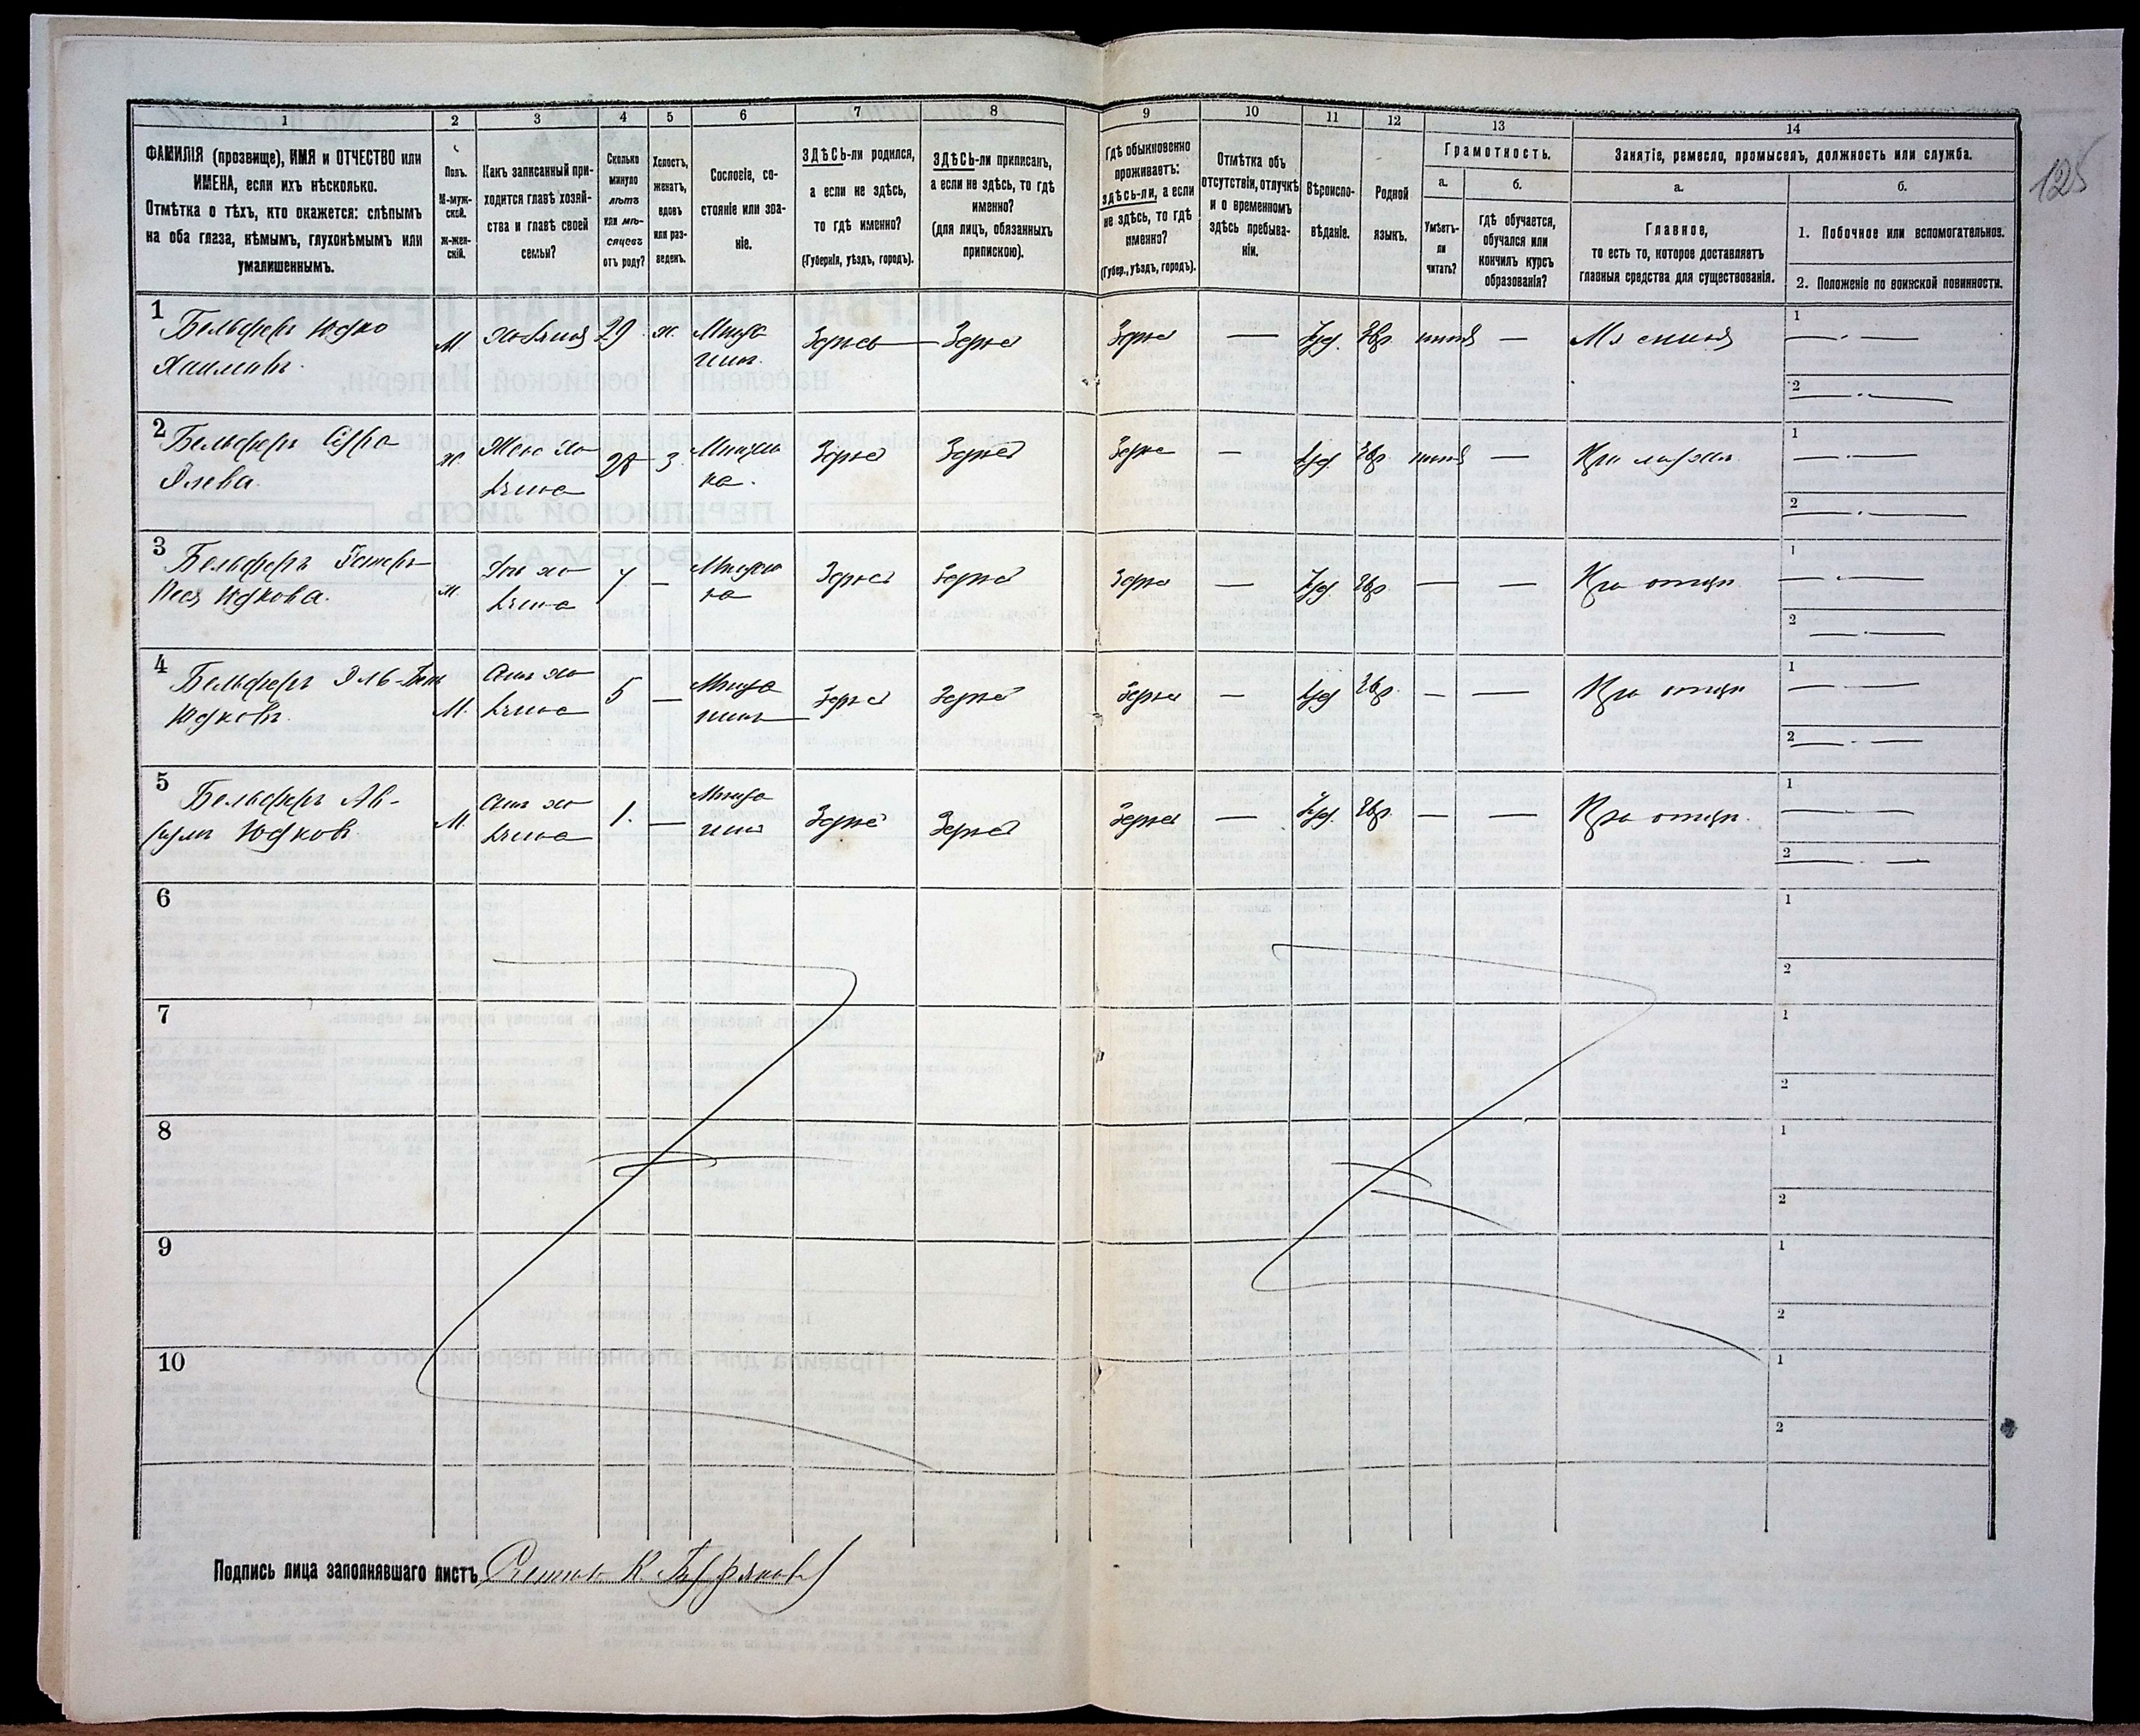 1 2 3 4 5 6 7 8 9 10 11 12 13 14
125
ФАМИЛІЯ (прозвище), ИМЯ и ОТЧЕСТВО или
ИМЕНА, если ихъ нѣсколько.
Отмѣтка о тѣхъ, кто окажется: слѣпымъ
на оба глаза, нѣмымъ, глухонѣмымъ или
умалишеннымъ.
Полъ.
М-муж-
ской.
ж-жен-
скій.
Какъ записанный при-
ходится главѣ хозяй-
ства и главѣ своей
семьи?
Сколько
минуло
лѣтъ
или мѣ-
сяцевъ
отъ роду?
Холостъ,
женатъ,
вдовъ
или раз-
веденъ.
Сословіе, со-
стояніе или зва-
ніе.
ЗДѢСЬ-ли родился,
а если не здѣсь,
то гдѣ именно?
(Губернія, уѣздъ, городъ).
ЗДѢСЬ-ли приписанъ,
а если не здѣсь, то гдѣ
именно?
(для лицъ, обязанныхъ
припискою).
Гдѣ обыкновенно
проживаетъ:
здѣсь-ли, а если
не здѣсь, то гдѣ
именно?
(Губер., уѣздъ, городъ).
Отмѣтка объ
отсутствіи, отлучкѣ
и о временномъ
здѣсь пребыва-
ніи.
Вѣроиспо-
вѣданіе.
Родной
языкъ.
Грамотность.
а.
Умѣетъ-
ли
читать?
б.
гдѣ обучается,
обучался или
кончилъ курсъ
образованія?
Занятіе, ремесло, промыселъ, должность или служба.
а.
Главное,
то есть то, которое доставляетъ
главныя средства для существованія.
б.
1. Побочное или вспомогательное.
2. Положеніе по воинской повинности.
1
Бельферъ Юдко
М
хозяинъ
29
ж.
Мѣща
нинъ
Здѣсь
Здѣсь
Здѣсь
—
Іуд.
Евр.
—
1
2
2
Бельферъ
ж.
Жена хо
зяина
28
З
Мѣщан
ка.
Здѣсь
Здѣсь
Здѣсь
—
Іуд
Евр.
—
При мужѣ
1
2
3
Бельферъ
Песя Юдкова.
7
—
Здѣсь
Здѣсь
Здѣсь
—
Іуд
Евр.
—
—
При отцѣ
1
2
4
Бельферъ
Юдковъ
М.
Сынъ хо
зяина
5
—
Мѣща
нинъ
Здѣсь
Здѣсь
Здѣсь
—
Іуд
Евр.
—
—
При отцѣ
1
2
5
Бельферъ
Юдков
М.
Сынъ хо
зяина
1.
—
Мѣща
нинъ
Здѣсь
Здѣсь
Здѣсь
—
Іуд.
Евр.
—
—
При отцѣ.
1
2
6
1
2
7
1
2
8
1
2
9
1
2
10
1
2
Подпись лица заполнявшаго листъ